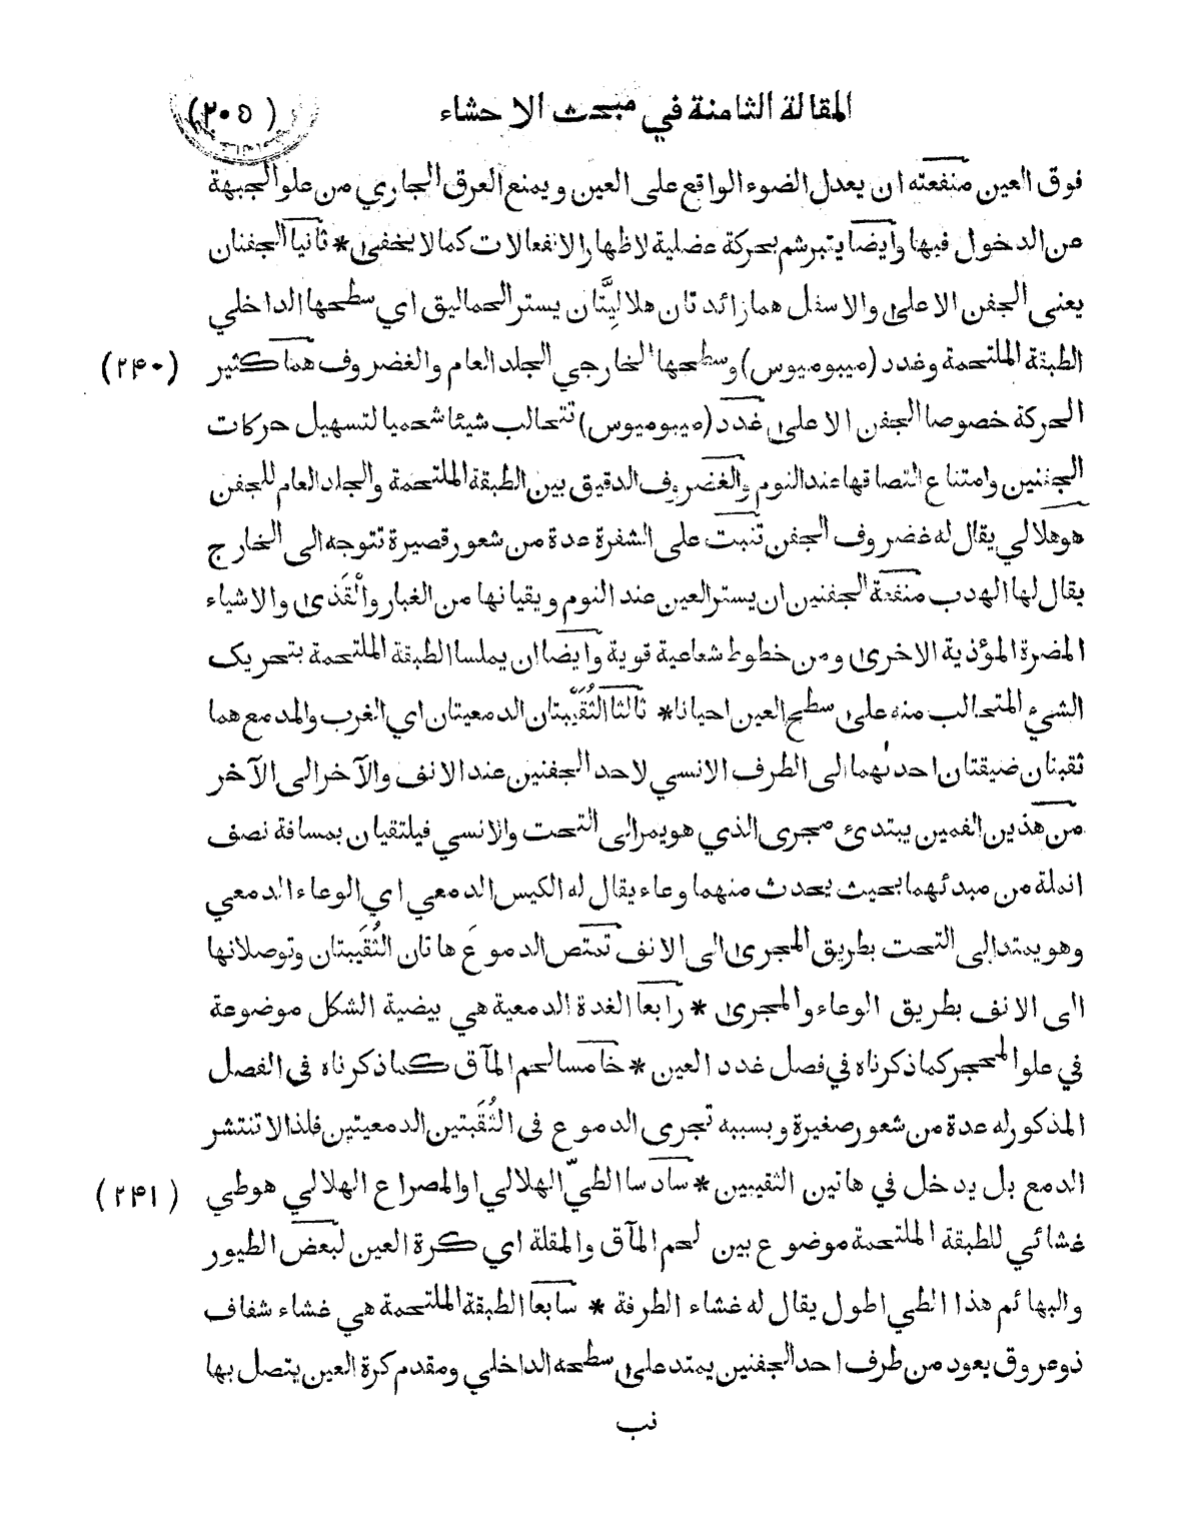 المقالة الثامنة في مبحث الاحشاء (٢٠٥)
فوق العين منفعته ان يعدل الضوء الواقع على العين ويمنع العرق الجاري من علو الجبهة
عن الدخول فيها وايضا يتبرشم بحركة عضلية لاظهار الانفعالات كما لا يخفى * ثانيا الجفنان
يعنى الجفن الاعلى والاسفل هما زائدتان هلاليّتان يستر الحماليق اي سطحها الداخلي
الطبقة الملتحمة وغدد (ميبوميوس) وسطحها الخارجي الجلد العام والغضروف هنا كثير (٢۴٠)
الحركة خصوصا الجفن الاعلى غدد (ميبوميوس) تتحالب شيئا شحميا لتسهيل حركات
الجفنين وامتناع التصاقها عند النوم والغضروف الدقيق بين الطبقة الملتحمة والجلد العام للجفن
هو هلالي يقال له غضروف الجفن تنبت على الشفرة عدة من شعور قصيرة تتوجه الى الخارج
يقال لها الهدب منفعة الجفنين ان يستر العين عند النوم ويقيانها من الغبار والْقَذى والاشياء
المضرة المؤذية الاخرى ومن خطوط شعاعية قوية وايضا ان يملسا الطبقة الملتحمة بتحريك
الشيء المتحالب منه على سطح العين احيانا * ثالثا الثُقَيْبتان الدمعيتان اي الغرب والمدمع هما
ثقبتان ضيقتان احدىهما الى الطرف الانسي لاحد الجفنين عند الانف والآخر الى الآخر
من هذين الفمين يبتدئ مجرى الذي هو يمر الى التحت والانسي فيلتقيان بمسافة نصف
انملة من مبدئهما بحيث يحدث منهما وعاء يقال له الكيس الدمعي اي الوعاء الدمعي
وهو يمتد إلى التحت بطريق المجرى الى الانف تمتص الدموعَ هاتان الثُقَيبتان وتوصلانها
الى الانف بطريق الوعاء والمجرى * رابعا الغدة الدمعية هي بيضية الشكل موضوعة
في علو المحجر كما ذكرناه في فصل غدد العين * خامسا لحم المآق كما ذكرناه فى الفصل
المذكور له عدة من شعور صغيرة وبسببه تجرى الدموع فى الثُقَبتين الدمعيتين فلذا لا تنتشر
الدمع بل يدخل في هاتين الثقيبين * سادسا الطيّ الهلالي او المصراع الهلالي هو طي (٢۴١)
غشائي للطبقة الملتحمة موضوع بين لحم المآق والمقلة اي كرة العين لبعض الطيور
والبهائم هذا الطي اطول يقال له غشاء الطرفة * سابعا الطبقة الملتحمة هي غشاء شفاف
ذو عروق يعود من طرف احد الجفنين يمتد على سطحه الداخلي ومقدم كرة العين يتصل بها
نب